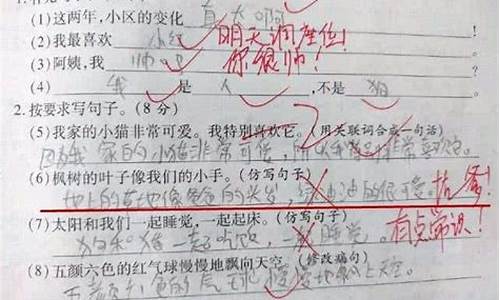 (1)这两年,小区的变化 真大啊
(2)我最喜欢 小红 明天调座位!
(3)阿姨,我 帅吧 你很帅!
(4) 我 是 人 ,不是 狗
2.按要求写句子。(8分)
(5)我家的小猫非常可爱。我特别喜欢它。(用关联词合成一句话)
因为我家的小猫非常可爱,所以我非常喜欢它。
(6)枫树的叶子像我们的小手。(仿写句子)
地上的草地像爸爸的头发,绿油油的很可爱。 找爹!
(7)太阳和我们一起睡觉,一起起床。(仿写句子)
狗和猪一起吃饭,一起睡觉。 有点常识!
(8)五颜六色的红气球慢慢地飘向天空。(修改病句)
五颜六色的气球慢慢地飘上天空。